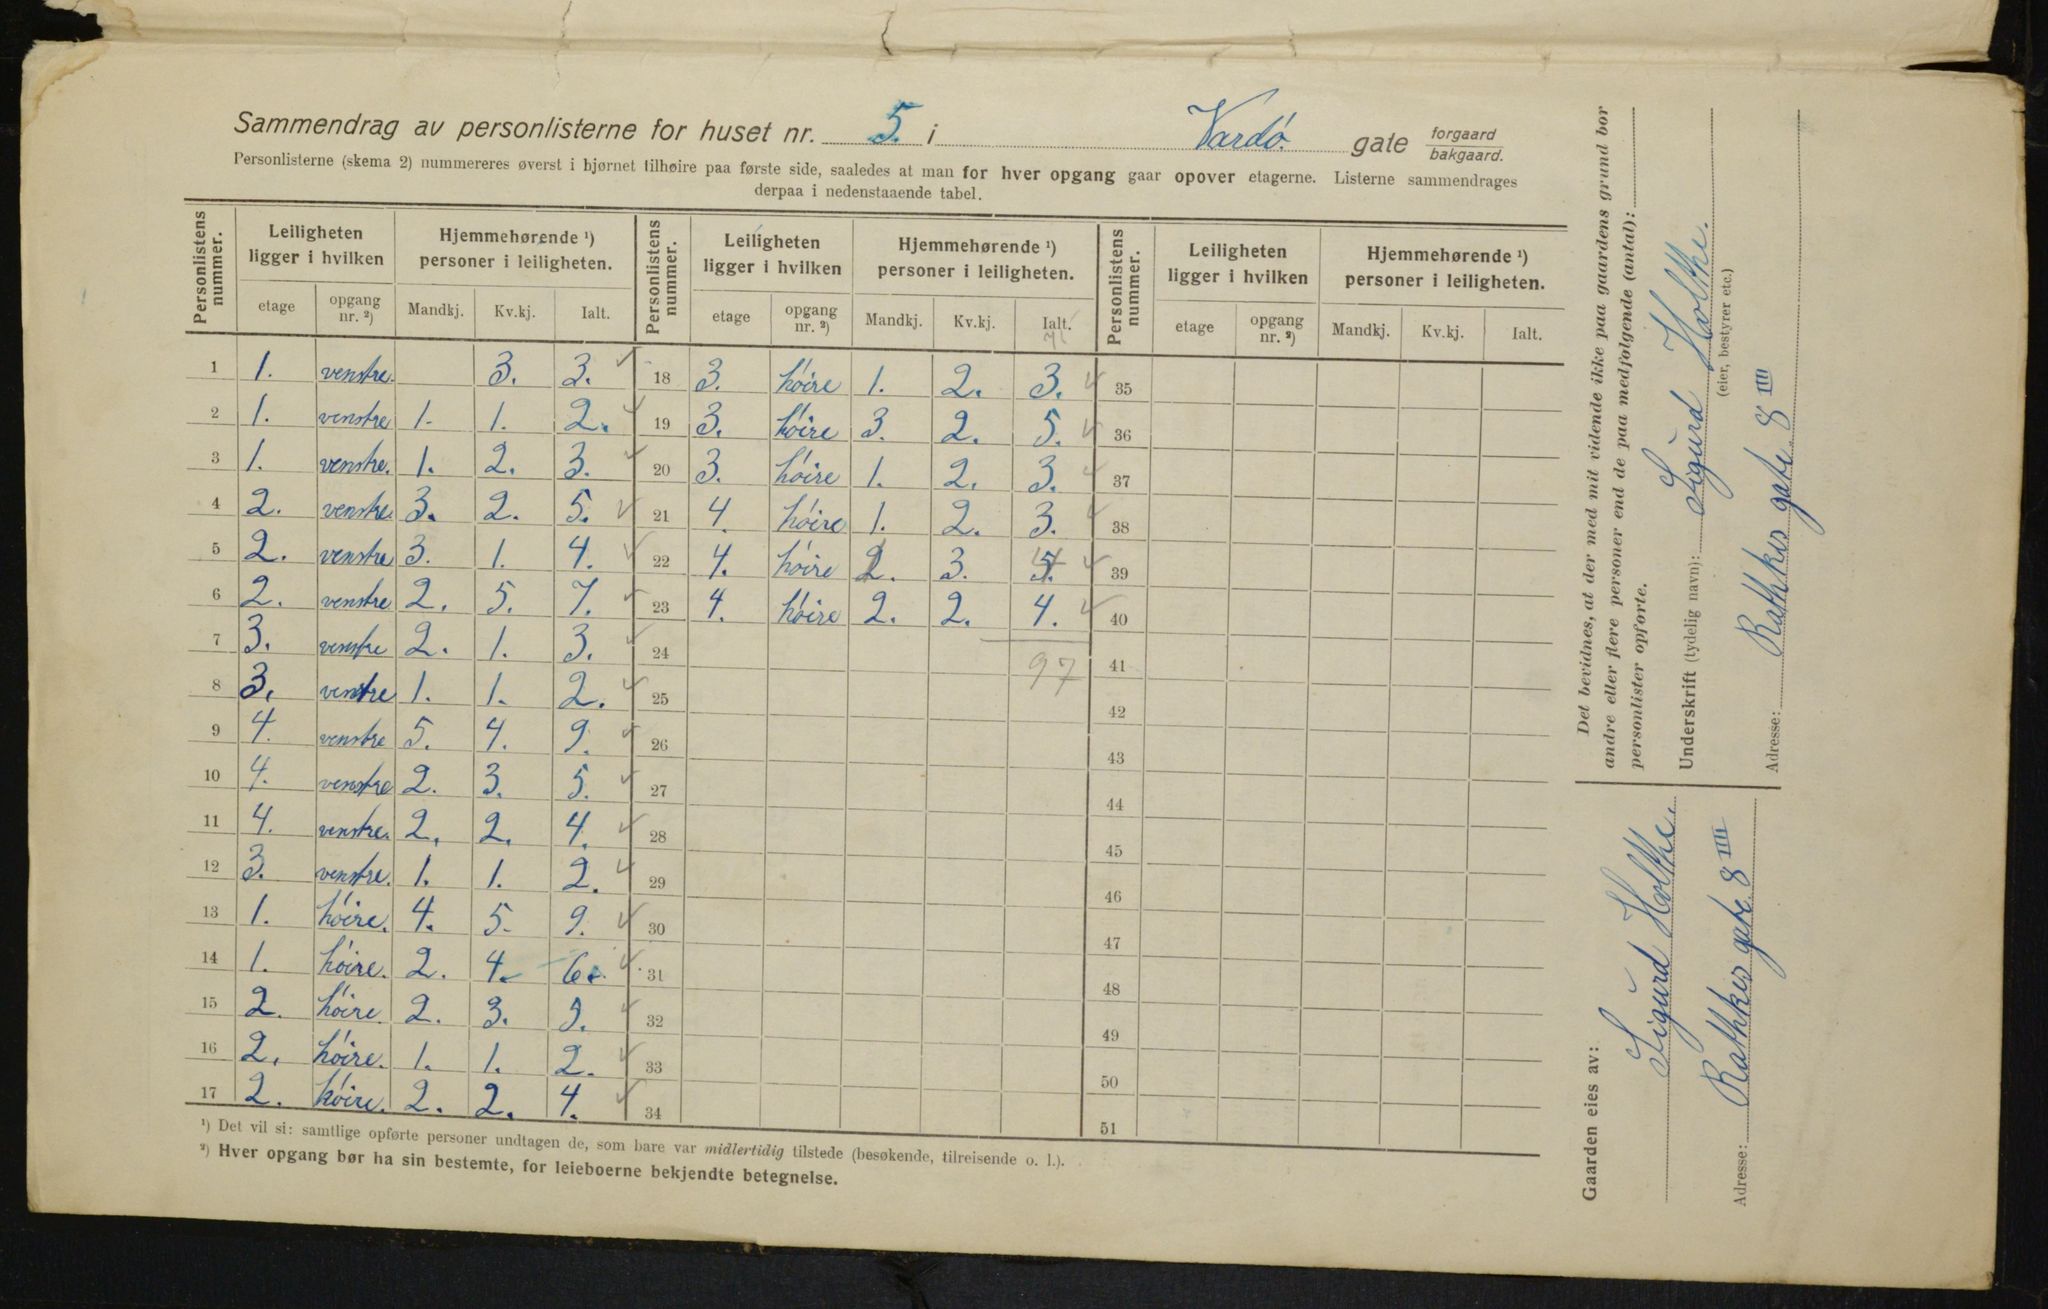 Sammendrag av personlisterne for huset nr. 5. i Vardö. gate forgaard bakgaard.
Personlisterne (skema 2) nummereres øverst i hjørnet tilhøire paa første side, saaledes at man for hver opgang gaar opover etagerne. Listerne sammendrages
derpaa i nedenstaaende tabel.
Personlistens nummer. Leiligheten ligger i hvilken Hjemmehørende ¹) personer i leiligheten. Personlistens nummer. Leiligheten ligger i hvilken Hjemmehørende ¹) personer i leiligheten. Personlistens nummer. Leiligheten ligger i hvilken Hjemmehørende ¹) personer i leiligheten.
etage opgang nr. ²) Mandkj. Kv.kj. Ialt. etage opgang nr. ²) Mandkj. Kv.kj. Ialt. etage opgang nr. ²) Mandkj. Kv.kj. Ialt.
71
1 1. venstre. 3. 3. 18 3. höire 1. 2. 3. 35
2 1. venstre 1. 1. 2. 19 3. höire 3. 2. 5. 36
3 1. venstre. 1. 2. 3. 20 3. höire 1. 2. 3. 37
4 2. venstre. 3. 2. 5. 21 4. höire 1. 2. 3. 38
5 2. venstre 3. 1. 4. 22 4. höire 3. 39
6 2. venstre 2. 5. 7. 23 4. höire 2. 2. 4. 40
7 3. venstre 2. 1. 3. 24 97 41
8 3. venstre 1. 1. 2. 25 42
9 4. venstre 5. 4. 9. 26 43
10 4. venstre 2. 3. 5. 27 44
11 4. venstre. 2. 2. 4. 28 45
12 3. venstre. 1. 1. 2. 29 46
13 1. höire. 4. 5. 9. 30 47
14 1. höire. 2. 4. 6. 31 48
15 2. höire. 2. 3. 32 49
16 2. höire. 1. 1. 2. 33 50
17 2. höire. 2. 2. 4. 34 51
¹) Det vil si: samtlige opførte personer undtagen de, som bare var midlertidig tilstede (besøkende, tilreisende o. l.).
²) Hver opgang bør ha sin bestemte, for leieboerne bekjendte betegnelse.
Det bevidnes, at der med mit vidende ikke paa gaardens grund bor
andre eller flere personer end de paa medfølgende (antal):
personlister opførte.
Underskrift (tydelig navn): Sigurd Holthe.
(eier, bestyrer etc.)
Adresse: Rathkes gate 8 III
Gaarden eies av: Sigurd Holthe.
Adresse: Rathkes gate 8 III